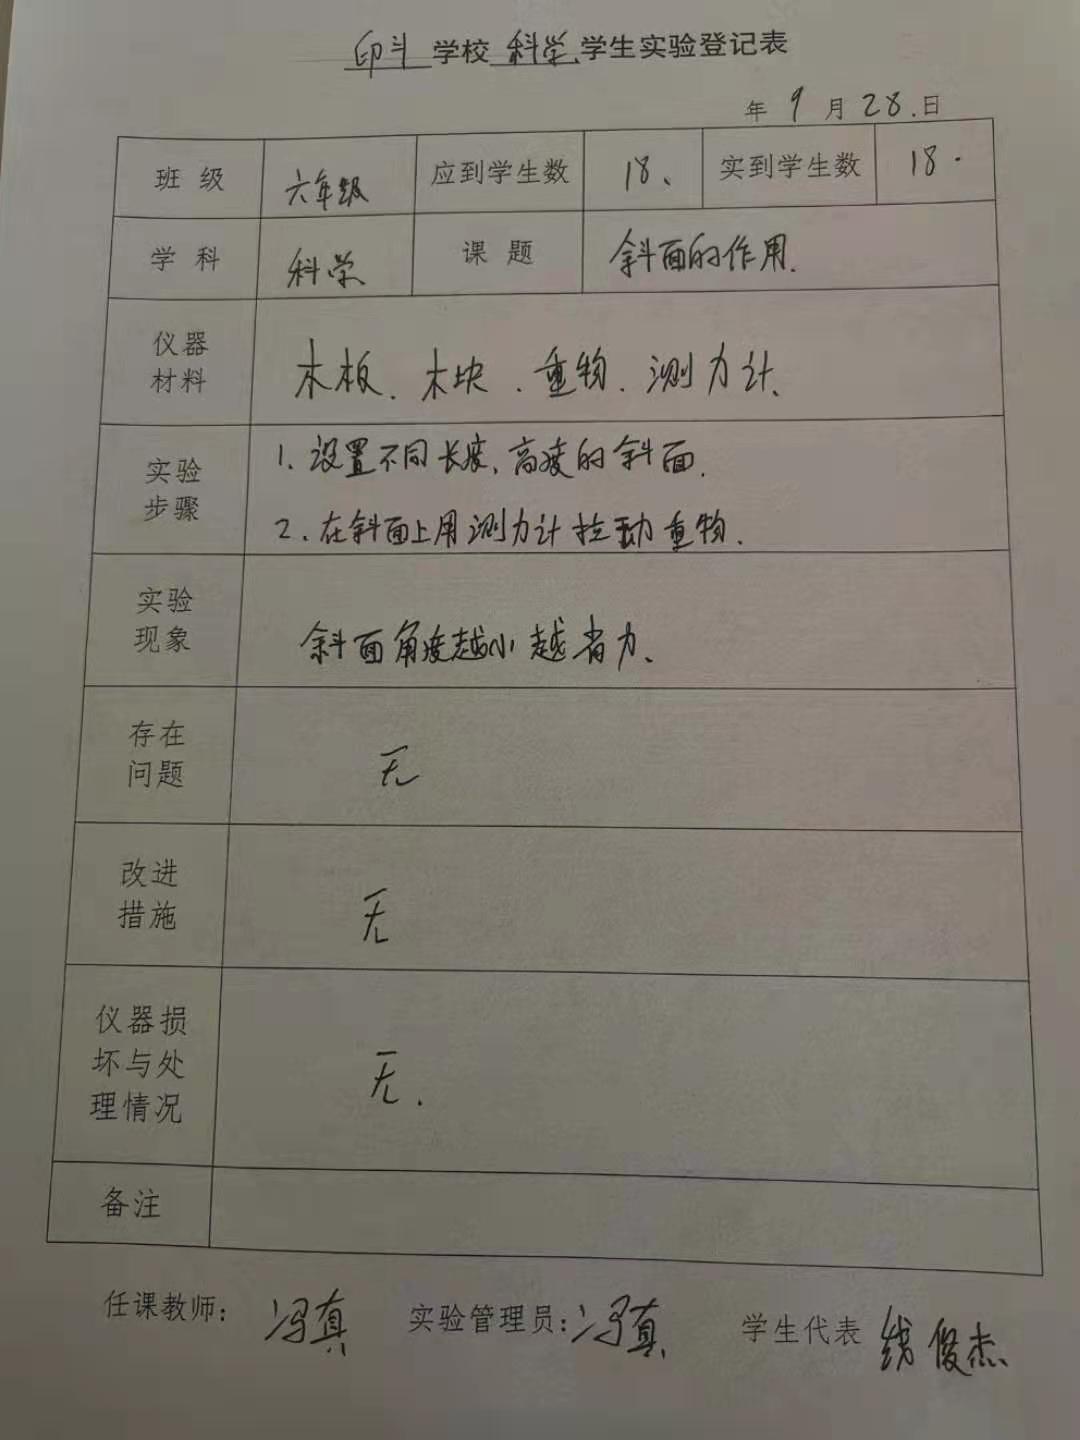 印斗学校科学学生实验登记表
年9月28.日
班级 六年级 应到学生数 18、 实到学生数 18.
学科 科学 课题 斜面的作用.
仪器
材料
木板、木块、重物、测力计.
实验
步骤
1、设置不同长度、高度的斜面.
2、在斜面上用测力计拉动重物.
实验
现象
斜面角度越小越省力、
存在
问题
无
改进
措施
无
仪器损
坏与处
理情况
无.
备注
任课教师：冯真 实验管理员：冯真 学生代表 俊杰